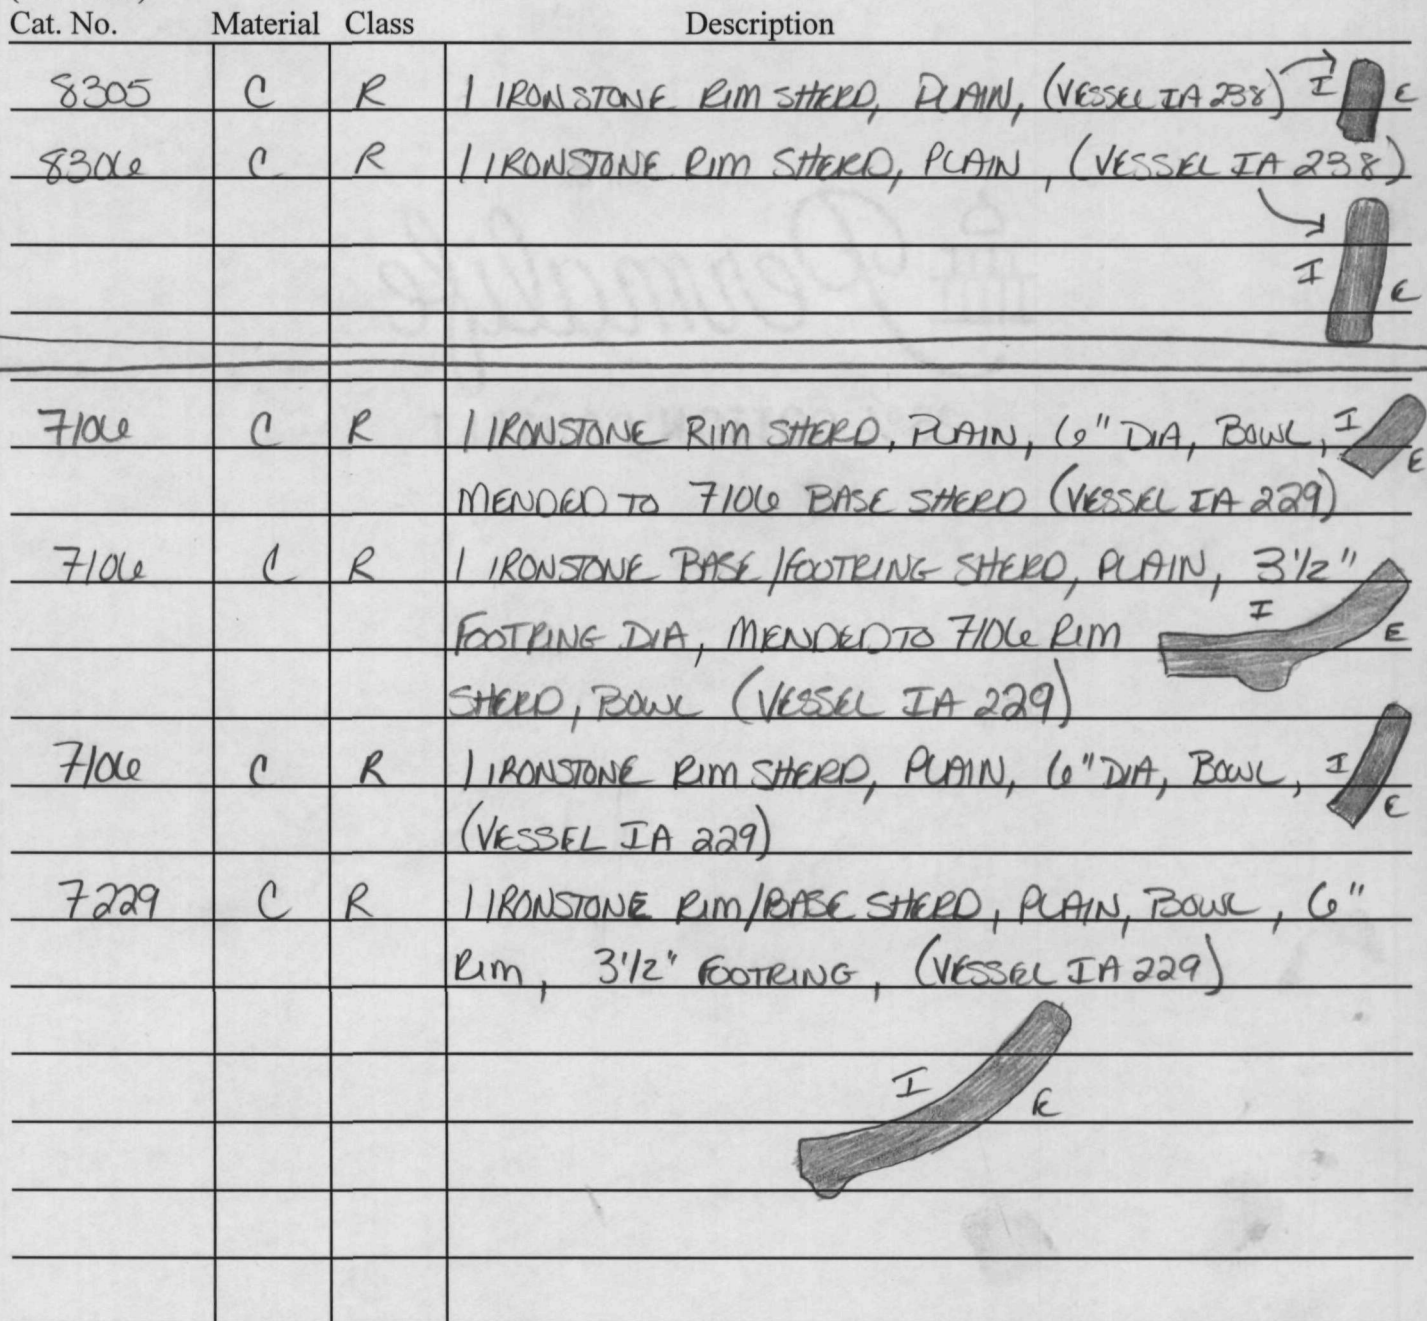 Cat. No. Material Class Description
8305 C R 1 IRONSTONE RIM SHERD, PLAIN, (VESSEL IA 238) I E
8306 C R 1 IRONSTONE RIM SHERD, PLAIN, (VESSEL IA 238)
I E
Permalife
7106 C R 1 IRONSTONE RIM SHERD, PLAIN, 6" DIA, BOWL, I E
MENDED TO 7106 BASE SHERD (VESSEL IA 229)
7106 C R 1 IRONSTONE BASE/FOOTRING SHERD, PLAIN, 3 1/2"
I E
FOOTRING DIA, MENDED TO 7106 RIM
SHERD, BOWL (VESSEL IA 229)
7106 C R 1 IRONSTONE RIM SHERD, PLAIN, 6" DIA, BOWL, I E
(VESSEL IA 229)
7229 C R 1 IRONSTONE RIM/BASE SHERD, PLAIN, BOWL, 6"
RIM, 3 1/2" FOOTRING, (VESSEL IA 229)
I E